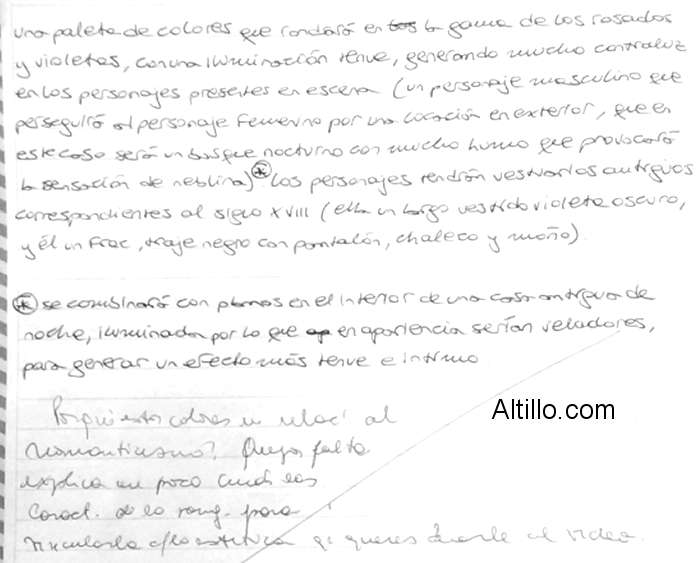 una paleta de colores que rondará en la gama de los rosados
y violetas, con una iluminación tenue, generando mucho contraluz
en los personajes presentes en escena (un personaje masculino que
perseguirá al personaje femenino por una locación en exterior, que en
este caso será un bosque nocturno con mucho humo que provocará
la sensación de neblina)* los personajes tendrán vestuarios antiguos
correspondientes al siglo XVIII (ella un largo vestido violeta oscuro,
y él un frac, traje negro con pantalón, chaleco y moño).
* se combinará con planos en el interior de una casa antigua de
noche, iluminada por lo que en apariencia serían veladores,
para generar un efecto más tenue e íntimo
Altillo.com
Porqué estos colores en relac. al
romanticismo? Quizás falta
explicar un poco cuales
Caract. de lo rom. para
vincularla a la estética q' queres darle al video.